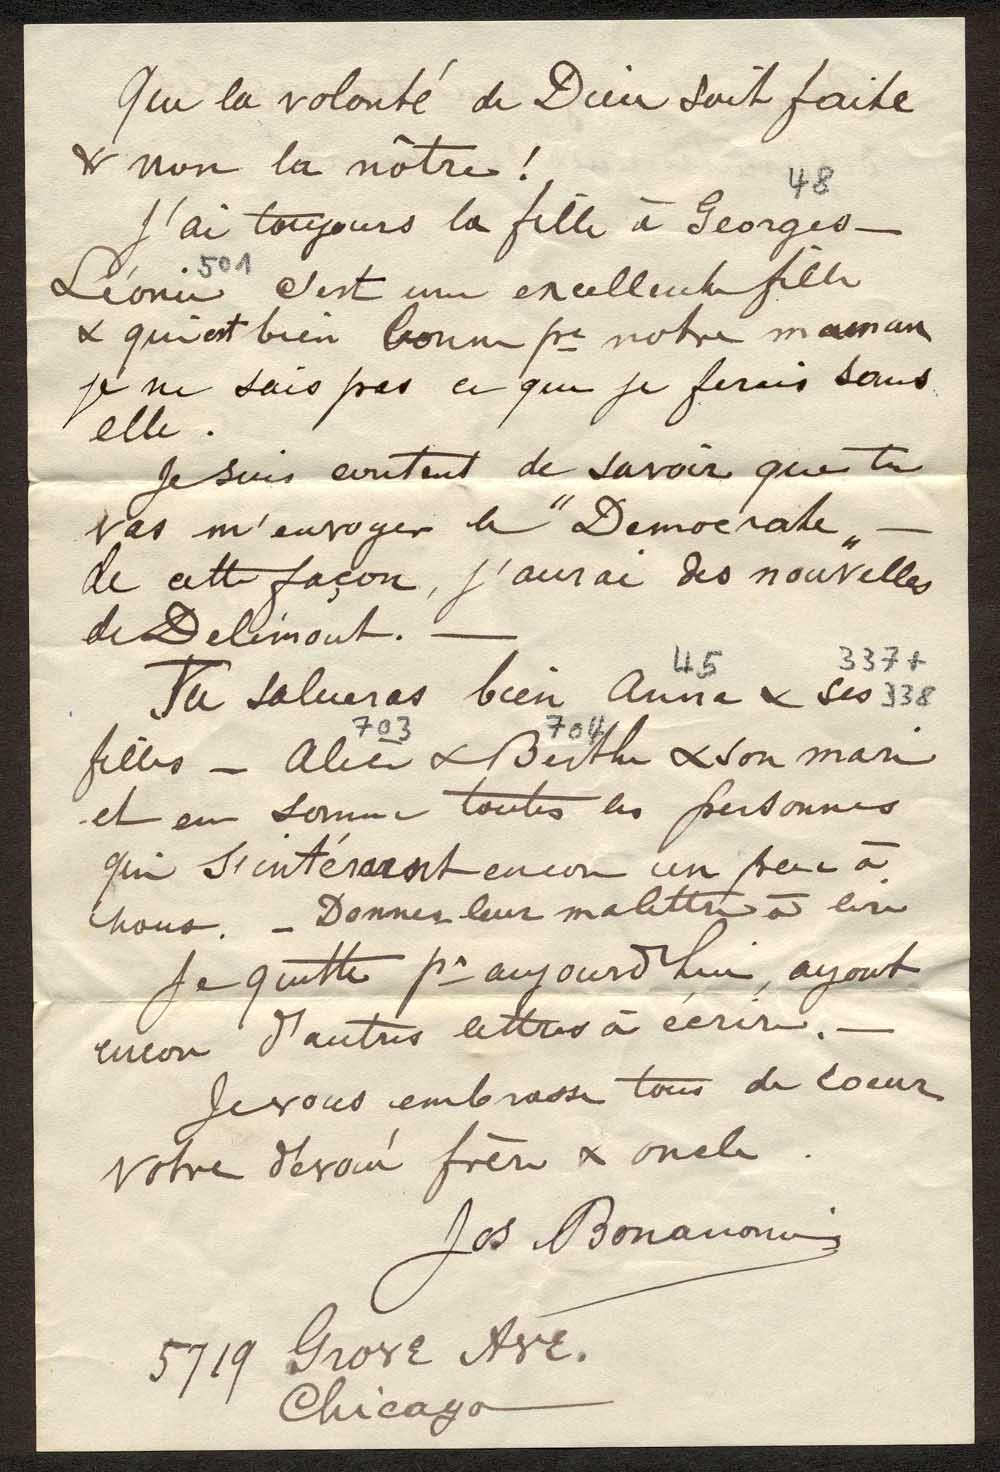 Que la volonté de Dieu soit faite
& non la nôtre !
48
J'ai toujours la fille à Georges —
501
Léonie c'est une excellente fille
& qui est bien bonne pr notre maman
je ne sais pas ce que je ferais sans
elle .
Je suis content de savoir que tu
vas m'envoyer le "Democrate„ —
de cette façon, j'aurai des nouvelles
de Delémont. —
45 337+
Tu salueras bien Anna & ses 338
703 704
filles — Alice & Berthe & son mari
et en somme toutes les personnes
qui s'intéressent encore un peu à
nous. — Donnes leur ma lettre à lire
Je quitte pr aujourd'hui, ayant
encore d'autres lettres à écrire. —
Je vous embrasse tous de coeur
votre dévoué frère & oncle .
Jos Bonanomi
5719 Grove Ave.
Chicago